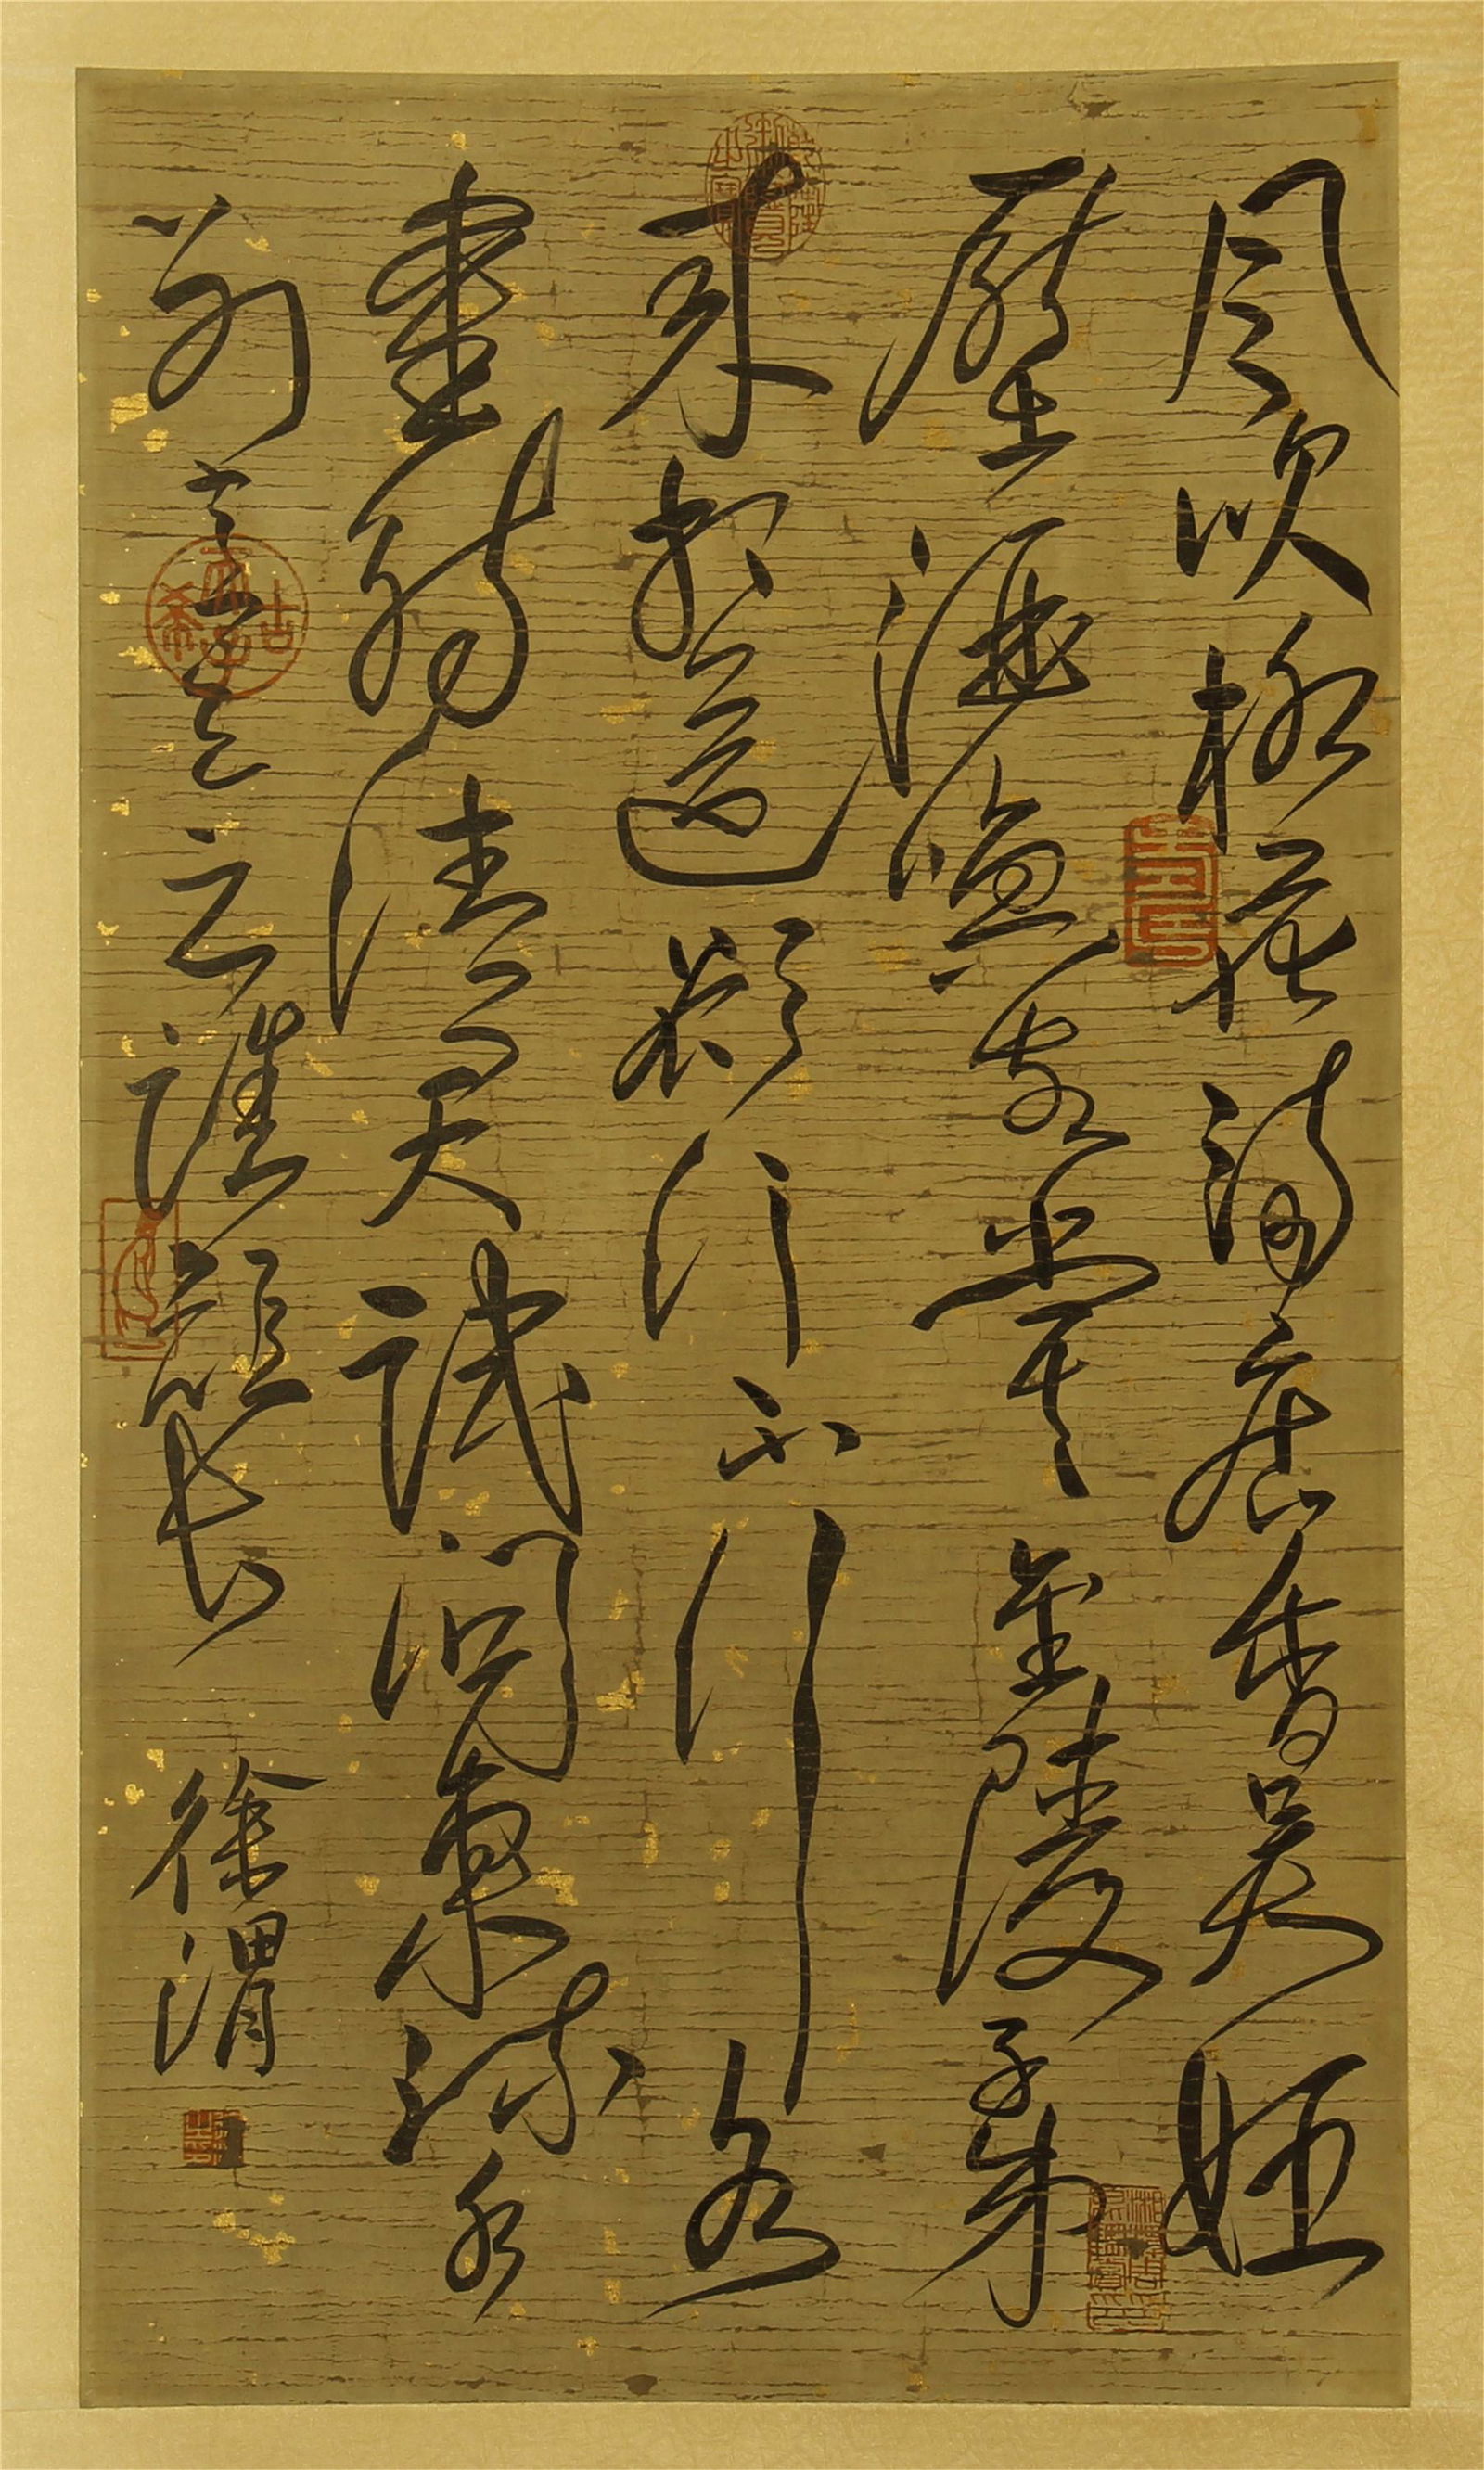 風吹柳花滿店香吳姬
壓酒喚客嘗金陵子弟
來相送欲行不行各
盡觴請君試問東流水
別意與之誰短長
徐渭
古希天子